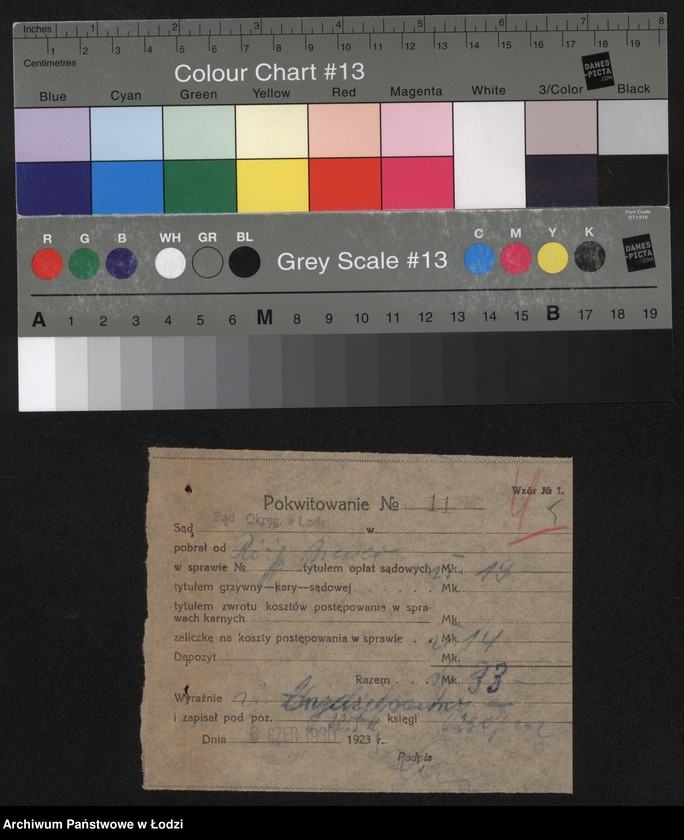 Inches 1 2 3 4 5 6 7 8
1 2 3 4 5 6 7 8 9 10 11 12 13 14 15 16 17 18 19
Centimetres
Colour Chart #13
DANES
-PICTA
.COM
Blue Cyan Green Yellow Red Magenta White 3/Color Black
Part Code
ST1316
R G B WH GR BL Grey Scale #13 C M Y K
DANES
-PICTA
.COM
A 1 2 3 4 5 6 M 8 9 10 11 12 13 14 15 B 17 18 19
Wzór № 1.
4
Pokwitowanie № 11
Sąd Okręg. w Łodzi
Sąd w
pobrał od
w sprawie № tytułem opłat sądowych Mk. 19
tytułem grzywny—kary—sądowej Mk.
tytułem zwrotu kosztów postępowania w spra-
wach karnych Mk.
zaliczkę na koszty postępowania w sprawie Mk. 14
Depozyt Mk.
Razem Mk. 33
Wyraźnie
i zapisał pod poz. księgi
Dnia 6 CZER 1930 1923 r.
Podpis
Archiwum Państwowe w Łodzi